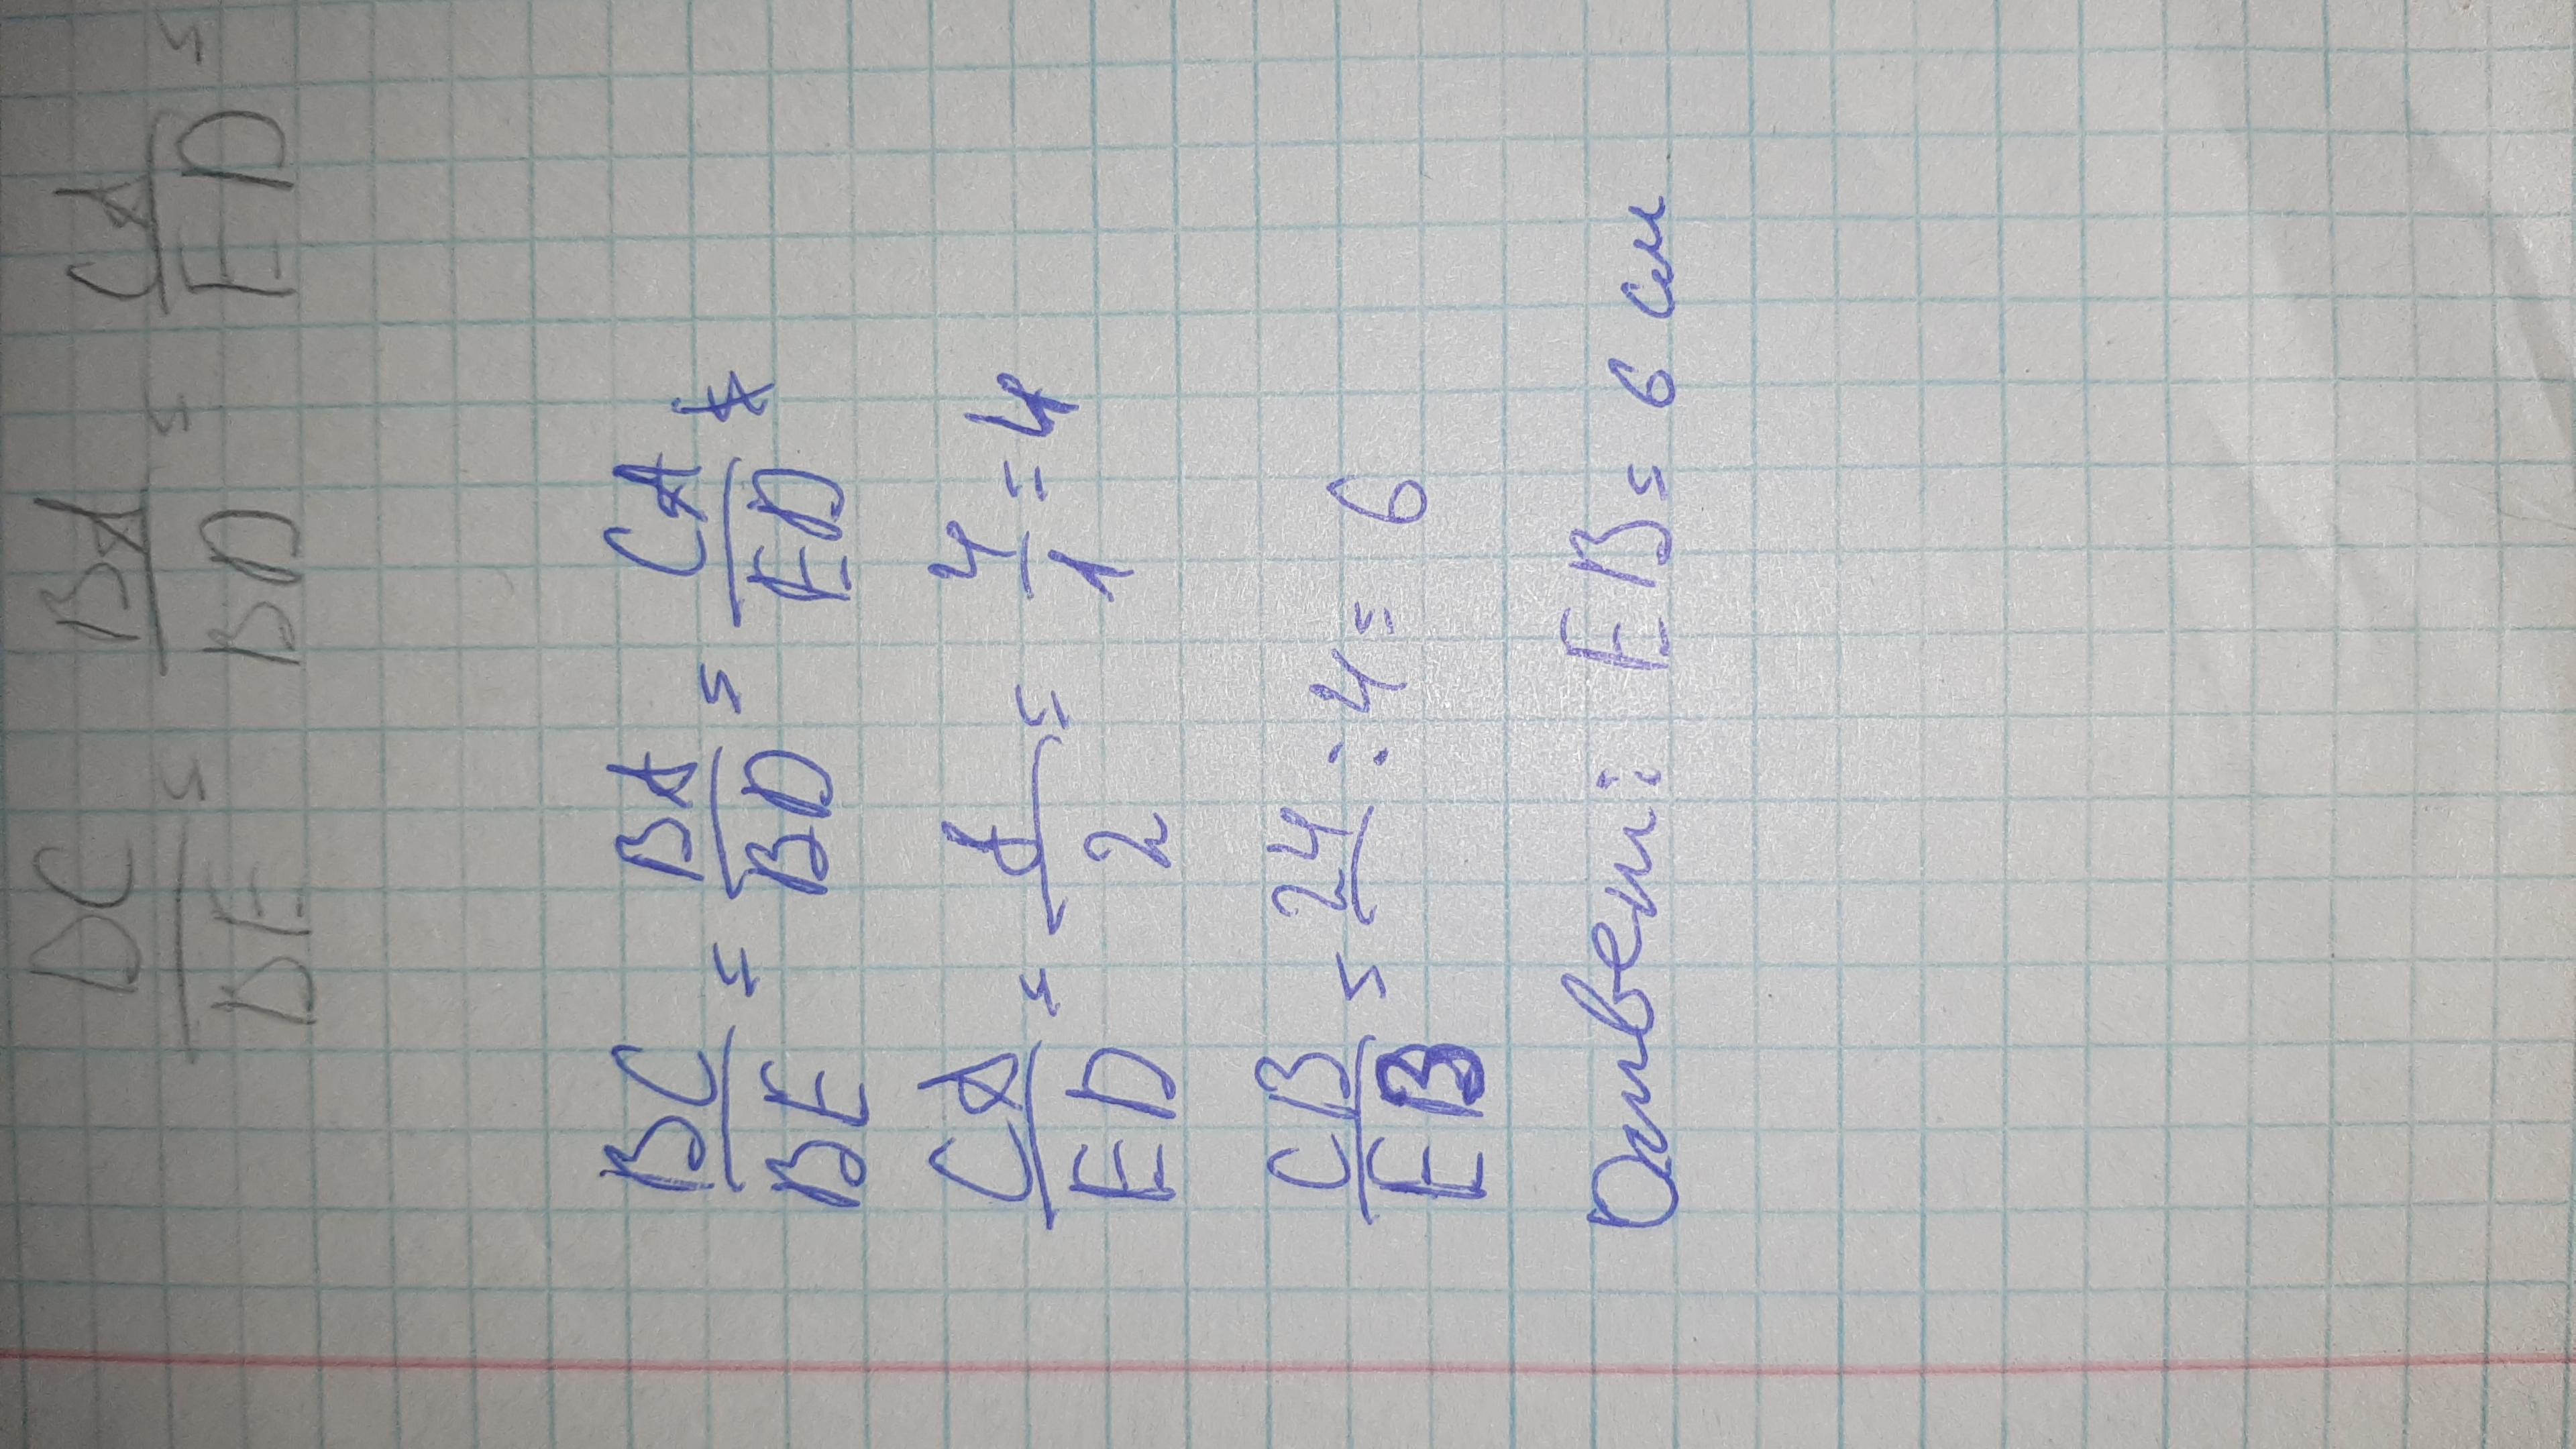 BC/BE = BA/BD = CA/ED =
BC/BE = BA/BD = CA/ED
CA/ED = 8/2 = 4/1 = 4
CB/EB = 24 : 4 = 6
Ответ: EB = 6 см